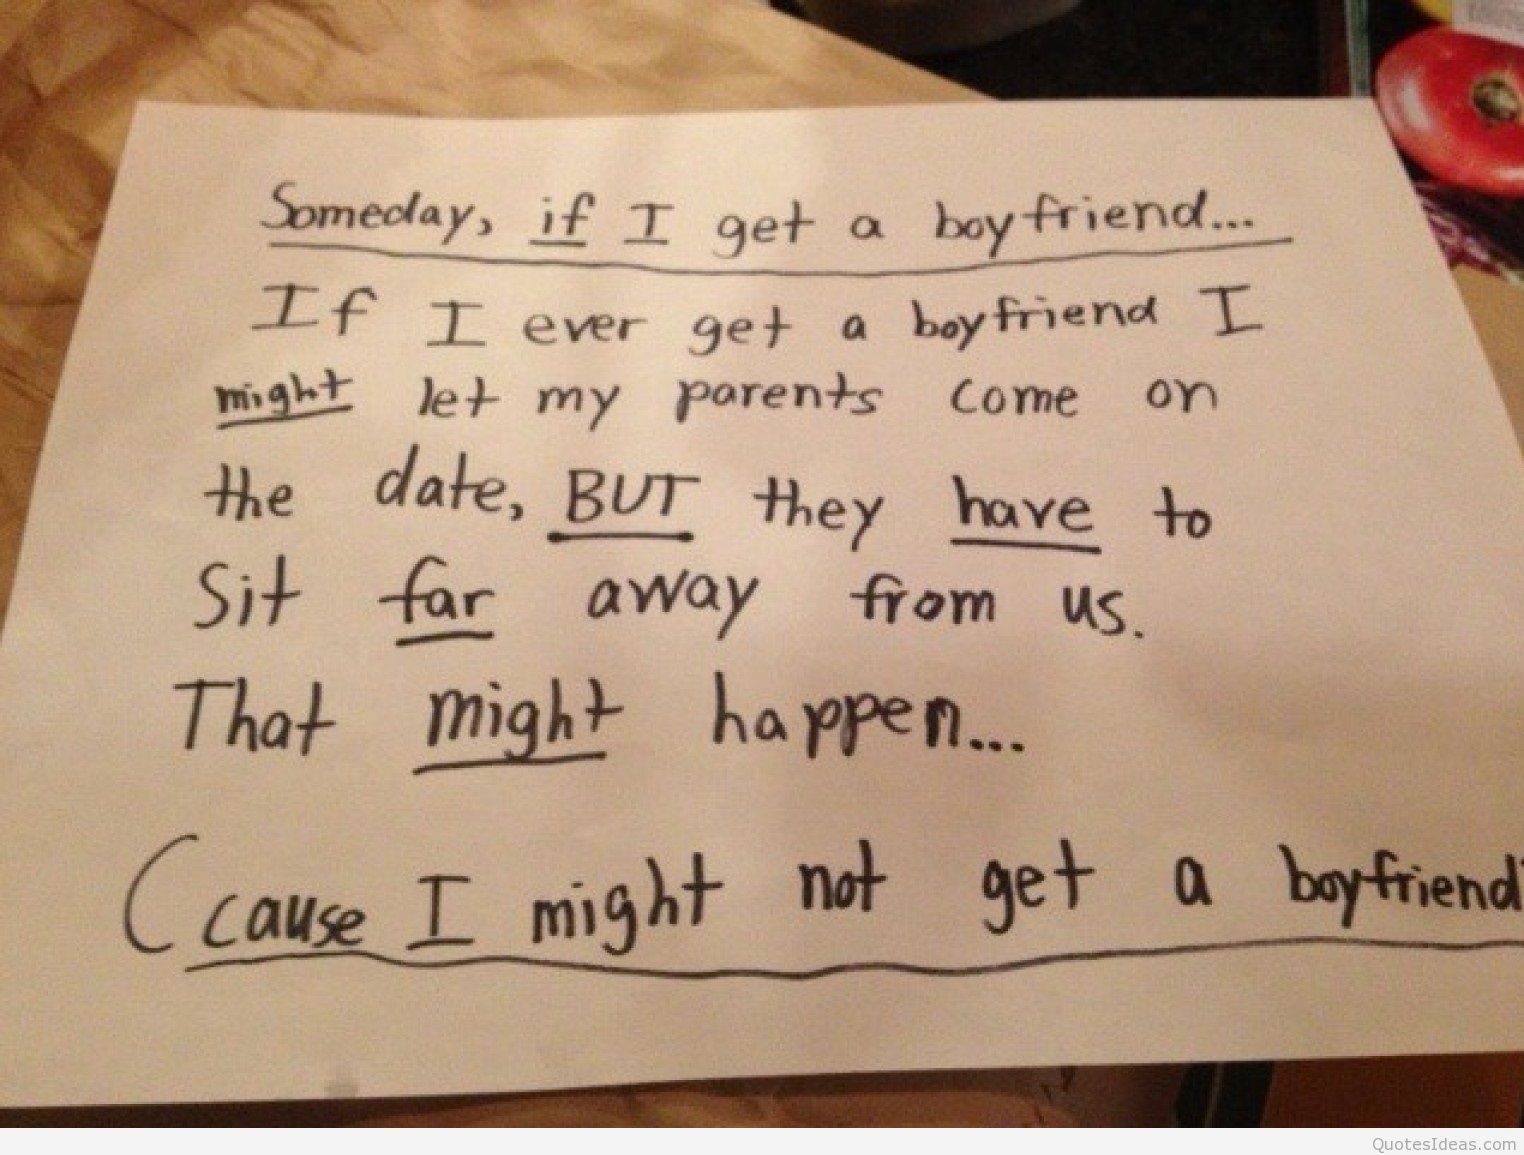 Someday, if I get a boyfriend...
If I ever get a boyfriend I
might let my parents come on
the date, BUT they have to
Sit far away from us.
That might happen...
(cause I might not get a boyfriend
QuotesIdeas.com